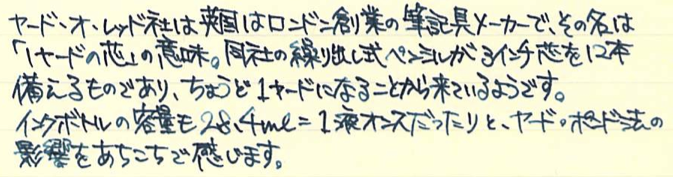 ヤード・オ・レッド社は英国はロンドン創業の筆記具メーカーで、その名は
「1ヤードの芯」の意味。同社の繰り出し式ペンシルが3インチ芯を12本
備えるものであり、ちょうど1ヤードになることから来ているようです。
インクボトルの容量も28.4ml=1液オンスだったりと、ヤード・ポンド法の
影響をあちこちで感じます。